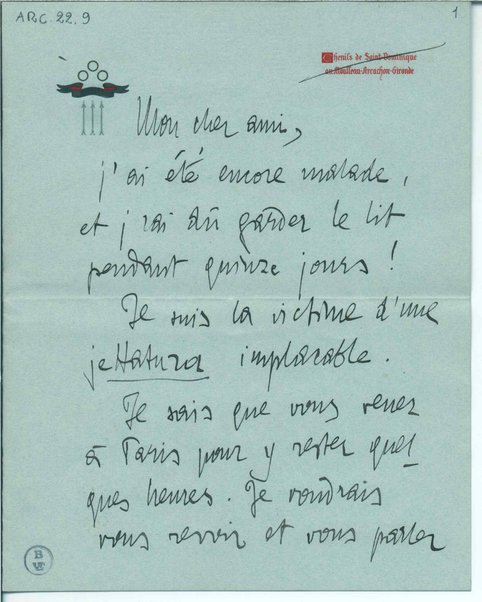 ARC. 22.9
1
Chenils de Saint-Dominique
au Moulleau-Arcachon-Gironde
Mon cher ami,
j'ai été encore malade,
et j'ai dû garder le lit
pendant quinze jours !
Je suis la victime d'une
jettatura implacable.
Je sais que vous venez
à Paris pour y rester quel-
ques heures. Je voudrais
vous revoir et vous parler